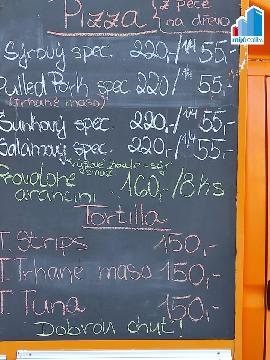 Pizza z pece na dřevo
Sýrový spec. 220,-/¼ 55,-
Pulled Pork spec 220/¼ 55,-
(trhané maso)
Šunkový spec. 220,-/¼ 55,-
Salámový spec. 220,-/¼ 55,-
Provolone
arancini 160,-/8ks
Tortilla
T. Strips 150,-
T. Trhané maso 150,-
T. Tuna 150,-
Dobrou chuť!